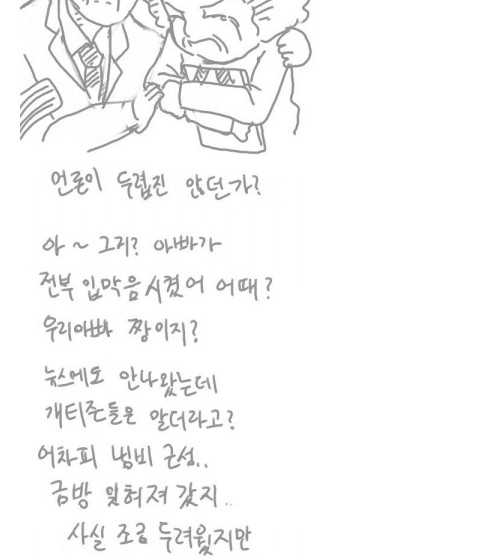 언론이 두렵진 않던가?
아~ 그거? 아빠가
전부 입막음시켰어 어때?
우리아빠 짱이지?
뉴스에도 안나왔는데
개티즌들은 알더라고?
어차피 냄비 근성..
금방 잊혀져 갔지..
사실 조금 두려웠지만